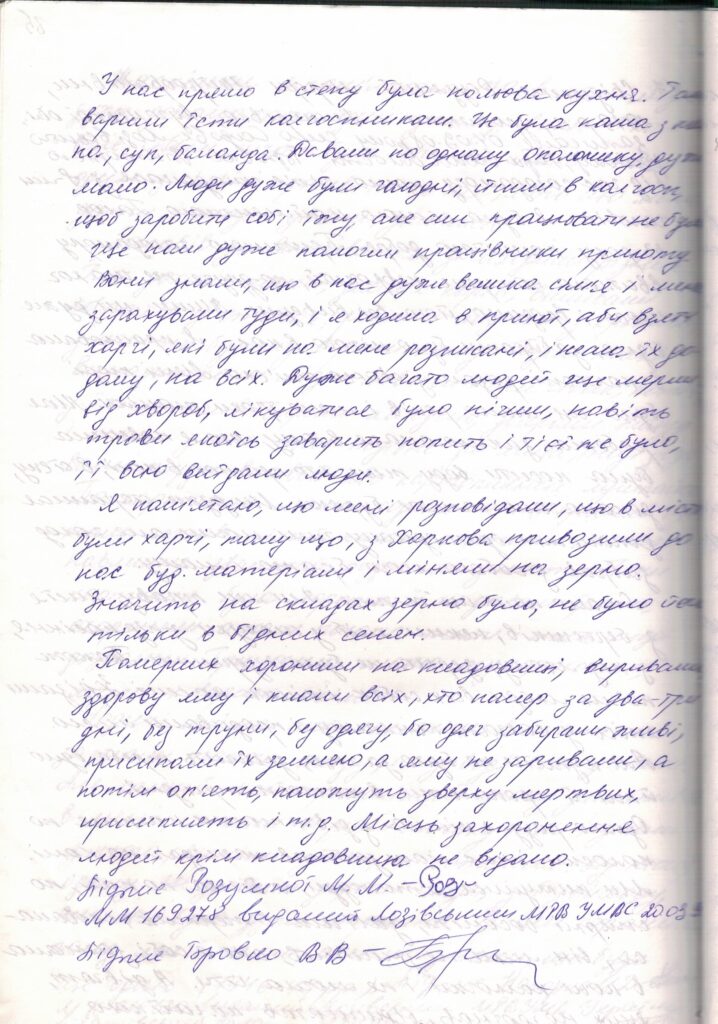 У нас прямо в степу була польова кухня. Там
варили їсти колгоспникам. Це була каша з
па, суп, баланда. Давали по одному ополонику, дуже
мало. Люди дуже були голодні, йшли в колгосп,
щоб заробити собі їжу, але сил працювати не було
Ще нам дуже помогли працівники приюту
Вони знали, що в нас дуже велика сім'я і мене
зарахували туди, і я ходила в приют, аби взяти
харчі, які були на мене розписані, і несла їх до
дому, на всіх. Дуже багато людей ще мерли
від хвороб, лікуватися було нічим, навіть
трови якоїсь заварить попить і тієї не було,
її всю виїдали люди.
Я пам'ятаю, що мені розповідали, що в місті
були харчі, тому що, з Харкова привозили до
нас буд. матеріали і міняли на зерно.
Значить на складах зерно було, не було його
тільки в бідних селян.
Померших хоронили на кладовищі, виривали
здорову яму і клали всіх, хто помер за два-три
дні, без труни, без одягу, бо одяг забирали живі,
присипали їх землею, а яму не заривали, а
потім оп'ять, положуть зверху мертвих,
присиплять і т.д. Місць захоронення
людей крім кладовища не відомо.
Підпис Розумної М. М. – Роз
ММ 169278 виданий Лозівським МРВ УМВС 20.03
Підпис Бровко В В –